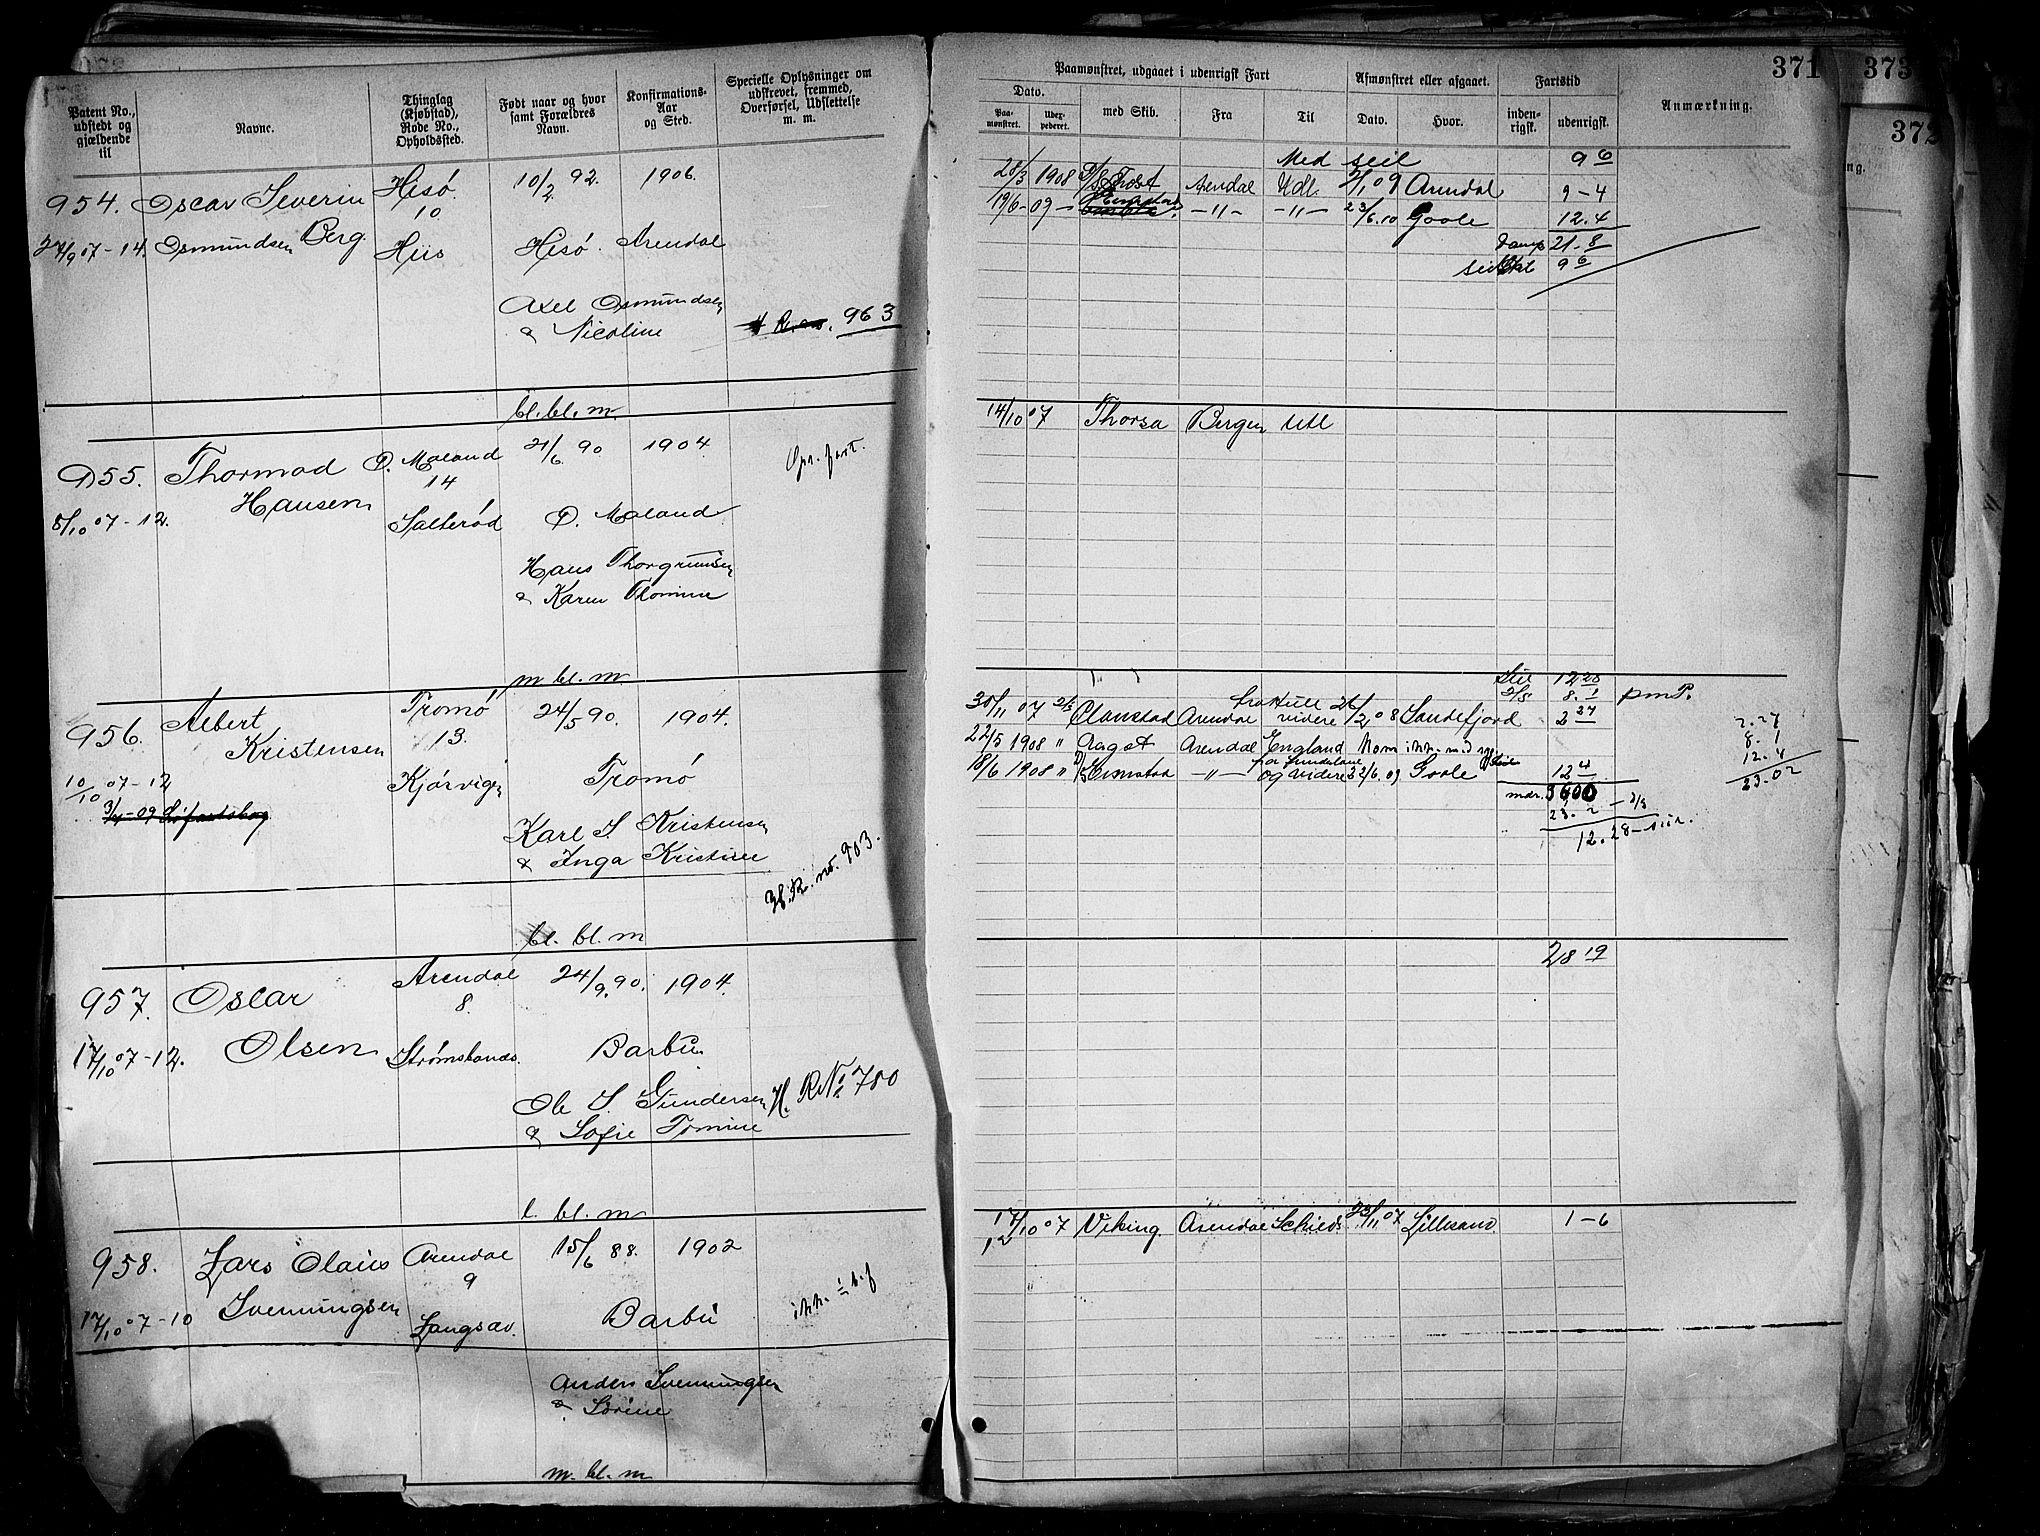 371
373
372
Patent No., udstedt og gjældende til
Navne.
Thinglag (Kjøbstad), Rode No., Opholdssted.
Født naar og hvor samt Forældres Navn.
Konfirmations-Aar og Sted.
Specielle Oplysninger om udskrevet, fremmed, Overførsel, Udslettelse m. m.
Paamønstret, udgaaet i udenrigsk Fart
Afmønstret eller afgaaet.
Fartstid
Anmærkning.
Dato.
Paamønstret.
Udexpederet.
med Skib.
Fra
Til
Dato.
Hvor.
indenrigsk.
udenrigsk.
954. Oscar Severin Hisö 10/2 92. 1906.
10
27/9 07-14. Osmundsen Berg. Hiis Hisö. Arendal
Axel Osmundsen
& Nicoline
963
bl. bl. m
Med seil 9 6
28/3 1908 D/S Trost Arendal Udl. 2/1 09 Arendal 9-4
19/6-09 - Grimstad -"- -"- 23/6.10 Goole 12.4
Damp 21-8
seil 9 6
955. Thormod Ø. Moland 21/6 90 1904
Hansen 14
8/10 07-12. Salterød Ø. Moland
Opr. fart.
Hans Thorgrimsen
& Karen Thomine
m bl. m
14/10 07 Thorsa Bergen Utl
956. Albert Tromö 24/5 90. 1904.
Kristensen 13.
10/10 07-12 Kjørvigen Tromö
3/4-09 Søfartsbog
Karl S. Kristensen
& Inga Kristine
H.R. no. 903.
bl. bl. m
Seil 12 28
D/S 8. 1 pmP.
30/11 07 Clanstad Arendal fra Hull videre 26/2 08 Sandefjord 2 27
22/5 1908 " Aagot Arendal England Kom ikke med
18/6 1908 " D/S Grimstad -"- og videre 22/6.09 Goole 12 4
2.27
8. 1
12.4
23.02
mdr. 3600
23. 2 - D/S
12.28 -
957. Oscar Arendal 24/9 90. 1904.
Olsen 8.
17/10 07-12. Strømsbunds. Barbu
Ole S. Gundersen
& Sofie Tomine
H. R No 780
l. bl. m
28 19
958. Lars Olaus Arendal 15/6 88. 1902
Svenningsen 9
17/10 07-10 Langsæv. Barbu
Anders Svenningsen
& Sörine
m. bl. m
17/10 07 Viking. Arendal Schieds. 23/11 07 Lillesand 1-6
12